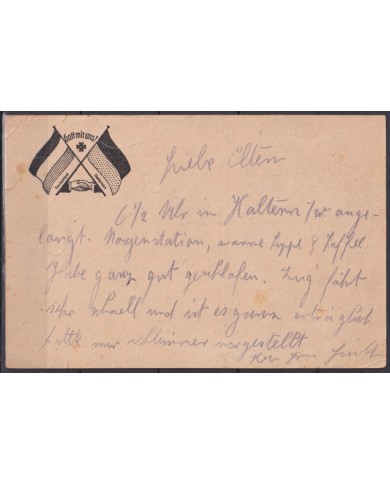 Gott mit uns!
Liebe Eltern
6 1/2 Uhr in Haltern i/w ange-
langt. Morgenstation, warme Suppe & Kaffee.
Habe ganz gut geschlafen. Zug fährt
sehr schnell und ist es ganz erträglich
hatte mir schlimmer vorgestellt